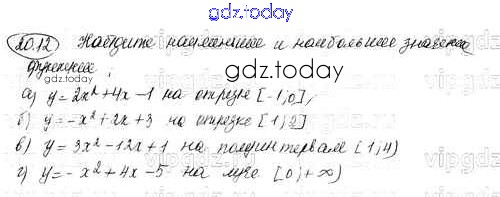 gdz.today
20.12 Найдите наименьшее и наибольшее значение
функции:
gdz.today
а) y=2x²+4x-1 на отрезке [-1;0];
б) y=-x²+2x+3 на отрезке [1;2]
в) y=3x²-12x+1 на полуинтервале [1;4)
г) y=-x²+4x-5 на луче [0;+∞)
gdz.today